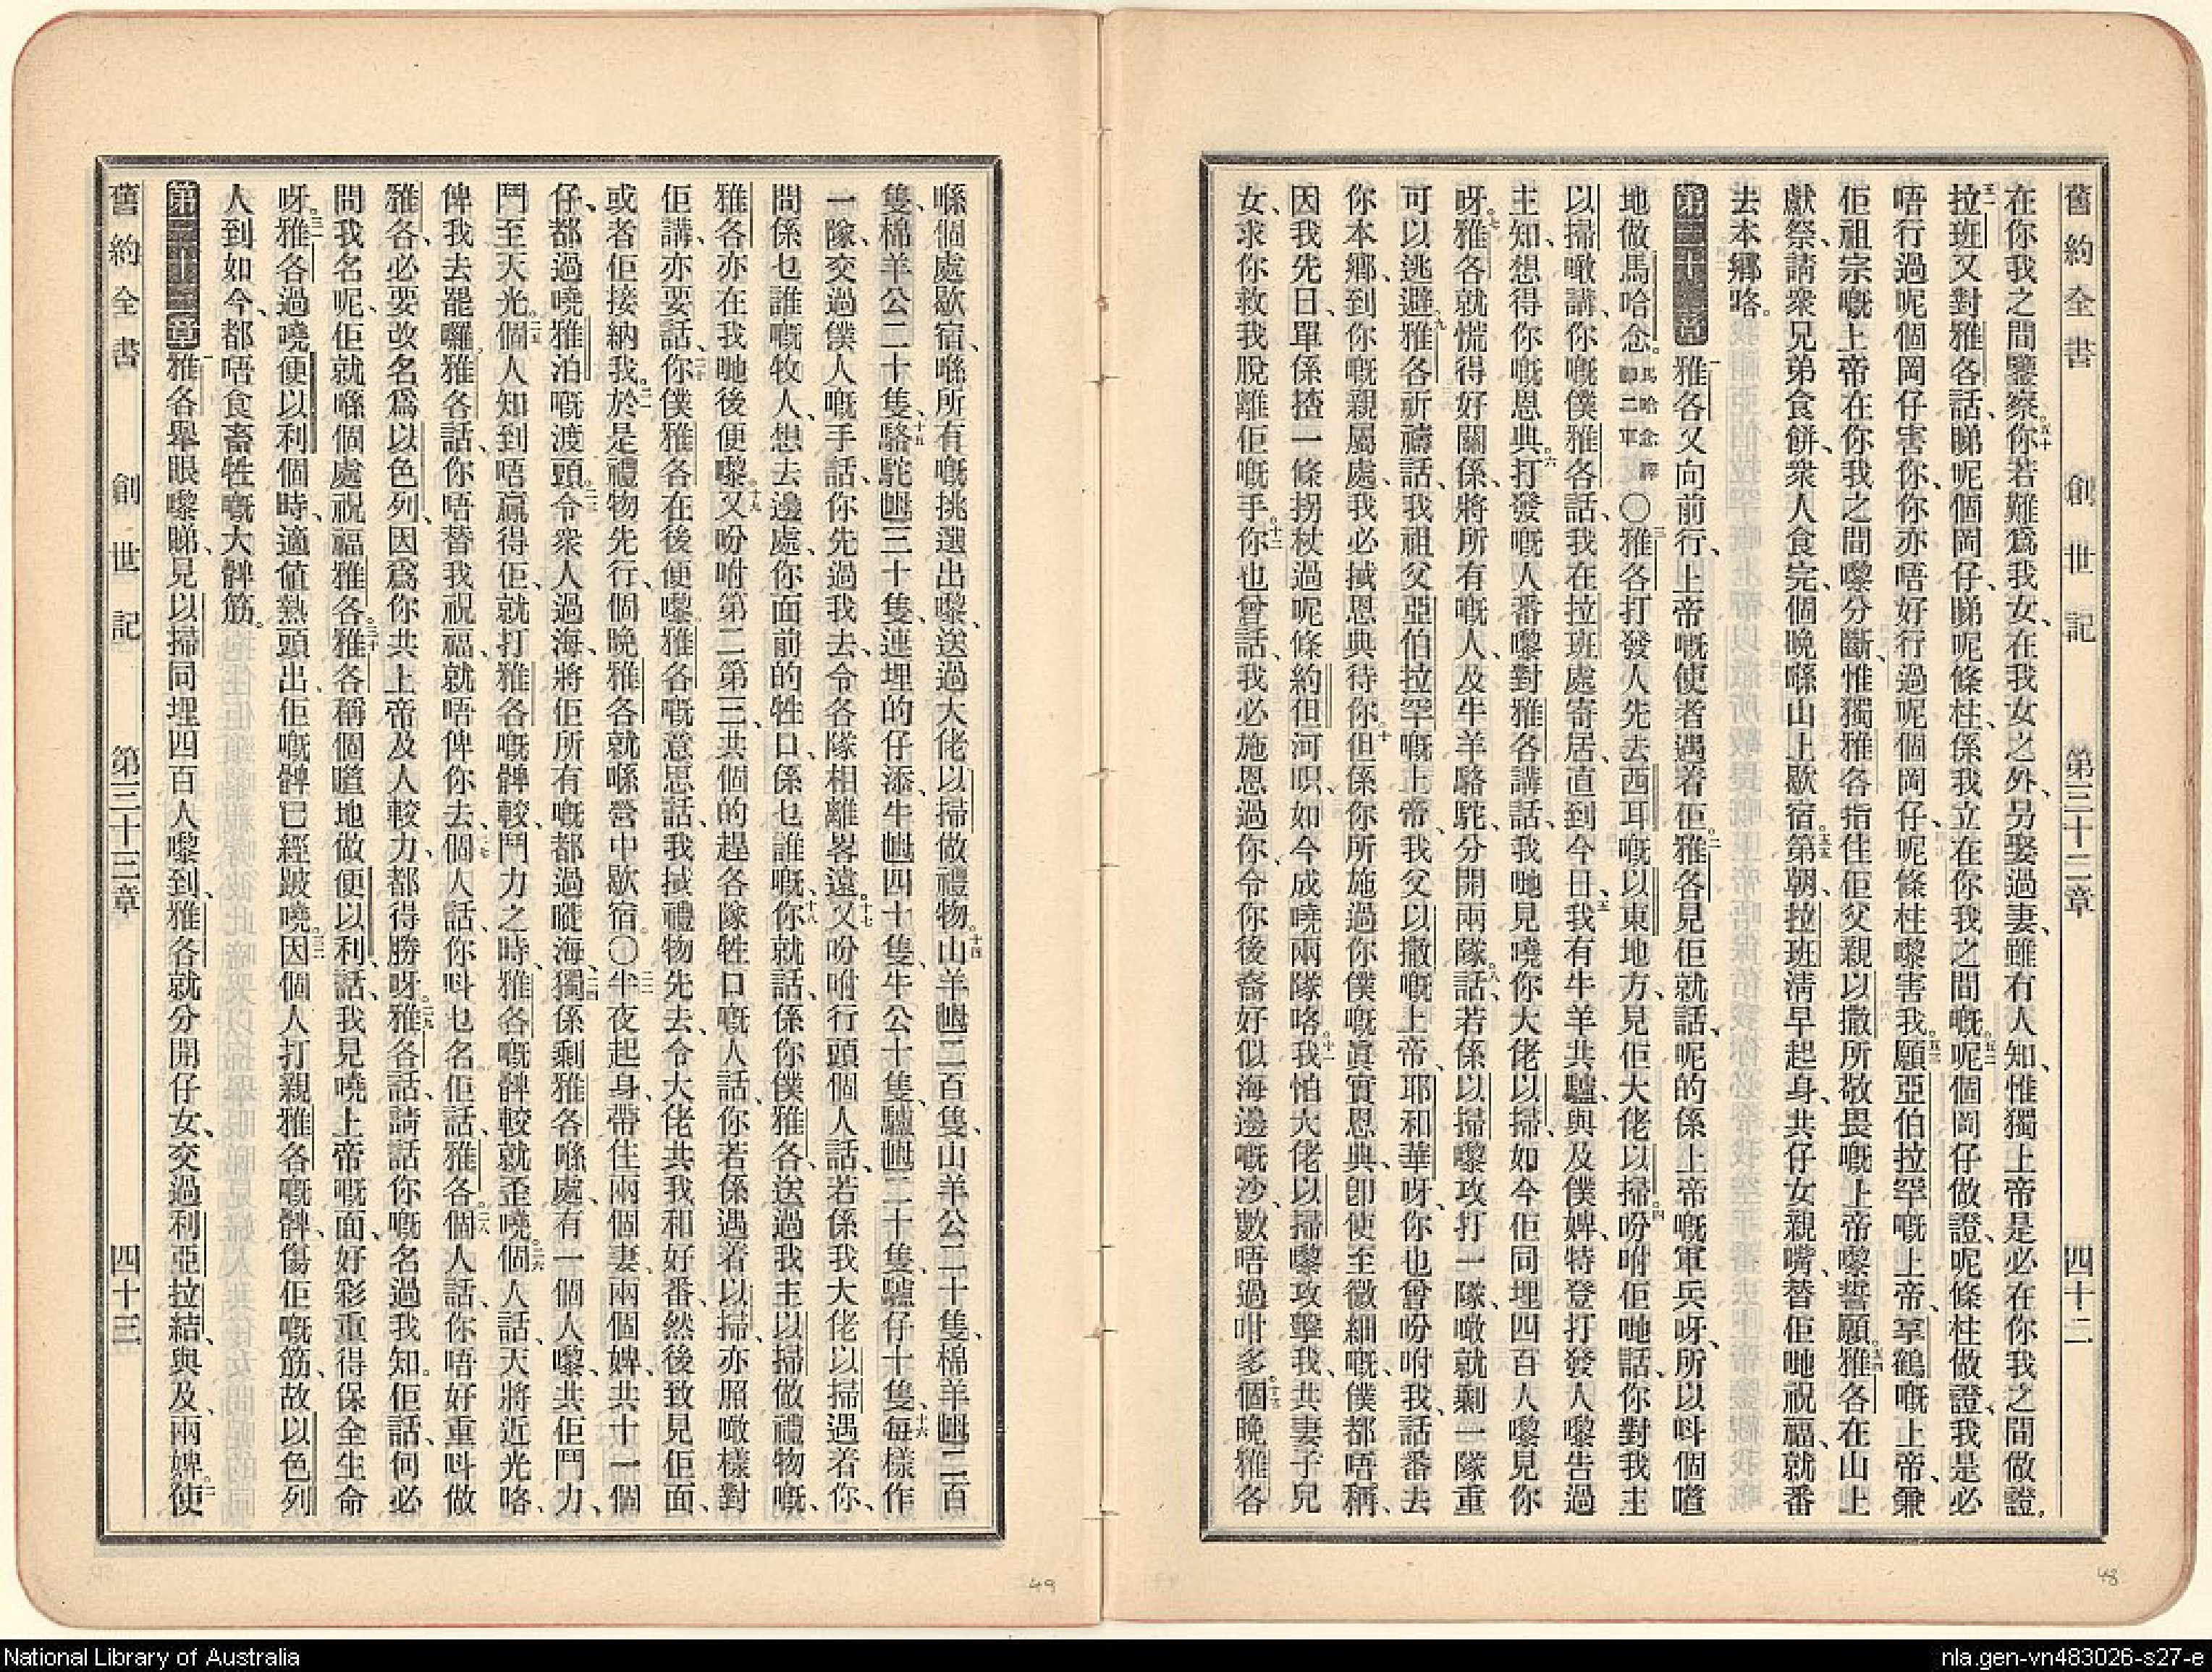 舊約全書 創世記 第三十二章 四十二
在你我之間鑒察。五十你若難為我女、在我女之外、另娶過妻、雖冇人知、惟獨上帝是必在你我之間做證。
五一拉班又對雅各話、睇呢個岡仔、睇呢條柱、係我立在你我之間嘅。五二呢個岡仔做證、呢條柱做證、我是必
唔行過呢個岡仔害你、你亦唔好行過呢個岡仔、呢條柱嚟害我。五三願亞伯拉罕嘅上帝、拿鶴嘅上帝、兼
佢祖宗嘅上帝在你我之間嚟分斷、惟獨雅各指住佢父親以撒所敬畏嘅上帝嚟誓願。五四雅各在山上
獻祭、請衆兄弟食餅、衆人食完、個晚喺山上歇宿。五五第朝、拉班清早起身、共仔女親嘴、替佢哋祝福、就番
去本鄉咯。
第三十二章 一雅各又向前行、上帝嘅使者遇着佢。二雅各見佢就話、呢的係上帝嘅軍兵呀、所以呌個噎
地做馬哈念。馬哈念譯卽二軍〇三雅各打發人先去西耳嘅以東地方、見佢大佬以掃。四吩咐佢哋話、你對我主
以掃噉講、你嘅僕雅各話、我在拉班處寄居、直到今日、五我有牛羊共驢、與及僕婢、特登打發人嚟告過
主知、想得你嘅恩典。六打發嘅人番嚟對雅各講話、我哋見嘵你大佬以掃、如今佢同埋四百人嚟見你
呀。七雅各就慌得好關係、將所有嘅人、及牛羊駱駝、分開兩隊、八話、若係以掃嚟攻打一隊、噉就剩一隊重
可以逃避。九雅各祈禱話、我祖父亞伯拉罕嘅上帝、我父以撒嘅上帝、耶和華呀、你也曾吩咐我、話番去
你本鄉、到你嘅親屬處、我必搣恩典待你、十但係你所施過你僕嘅眞實恩典、卽使至微細嘅、僕都唔稱、
因我先日、單係揸一條拐杖過呢條約但河、呮如今成嘵兩隊咯。十一我怕大佬以掃嚟攻擊我、共妻子兒
女、求你救我脫離佢嘅手。十二你也曾話、我必施恩過你、令你後裔好似海邊嘅沙、數唔過咁多。十三個晚雅各
喺個處歇宿、喺所有嘅挑選出嚟、送過大佬以掃做禮物。十四山羊乸二百隻、山羊公二十隻、棉羊乸二百
隻、棉羊公二十隻、十五駱駝乸三十隻、連埋的仔添、牛乸四十隻、牛公十隻、驢乸二十隻、驢仔十隻、十六每樣作
一隊、交過僕人嘅手、話、你先過我去、令各隊相離畧遠。十七又吩咐行頭個人話、若係我大佬以掃遇着你、
問係乜誰嘅牧人、想去邊處、你面前的牲口、係乜誰嘅、十八你就話、係你僕雅各、送過我主以掃做禮物嘅、
雅各亦在我哋後便嚟。十九又吩咐第二第三、共個的趕各隊牲口嘅人話、你若係遇着以掃、亦照噉樣對
佢講、亦要話、二十你僕雅各在後便嚟。雅各嘅意思話、我搣禮物先去、令大佬共我和好番、然後致見佢面、
或者佢接納我。二一於是禮物先行、個晚雅各就喺營中歇宿。〇二二半夜起身、帶住兩個妻、兩個婢、共十一個
仔、都過嘵雅泊嘅渡頭。二三令衆人過海、將佢所有嘅都過嘥海、二四獨係剩雅各喺處、有一個人嚟、共佢鬥力、
鬥至天光。二五個人知到唔贏得佢、就打雅各嘅髀較、鬥力之時、雅各嘅髀較就歪嘵。二六個人話、天將近光咯、
俾我去罷囉。雅各話、你唔替我祝福、就唔俾你去、二七個人話、你呌乜名、佢話、雅各。二八個人話、你唔好重呌做
雅各、必要改名爲以色列、因爲你共上帝及人較力、都得勝呀。二九雅各話、請話你嘅名過我知。佢話、何必
問我名呢、佢就喺個處祝福雅各。三十雅各稱個噎地做便以利、話、我見嘵上帝嘅面、好彩重得保全生命
呀。三一雅各過嘵便以利個時、適値熱頭出、佢嘅髀已經跛嘵。三二因個人打親雅各嘅髀、傷佢嘅筋、故以色列
人到如今、都唔食畜牲嘅大髀筋。
第三十三章 一雅各舉眼嚟睇、見以掃同埋四百人嚟到、雅各就分開仔女、交過利亞拉結、與及兩婢。二使
舊約全書 創世記 第三十三章 四十三
48
49
National Library of Australia
nla.gen-vn483026-s27-e